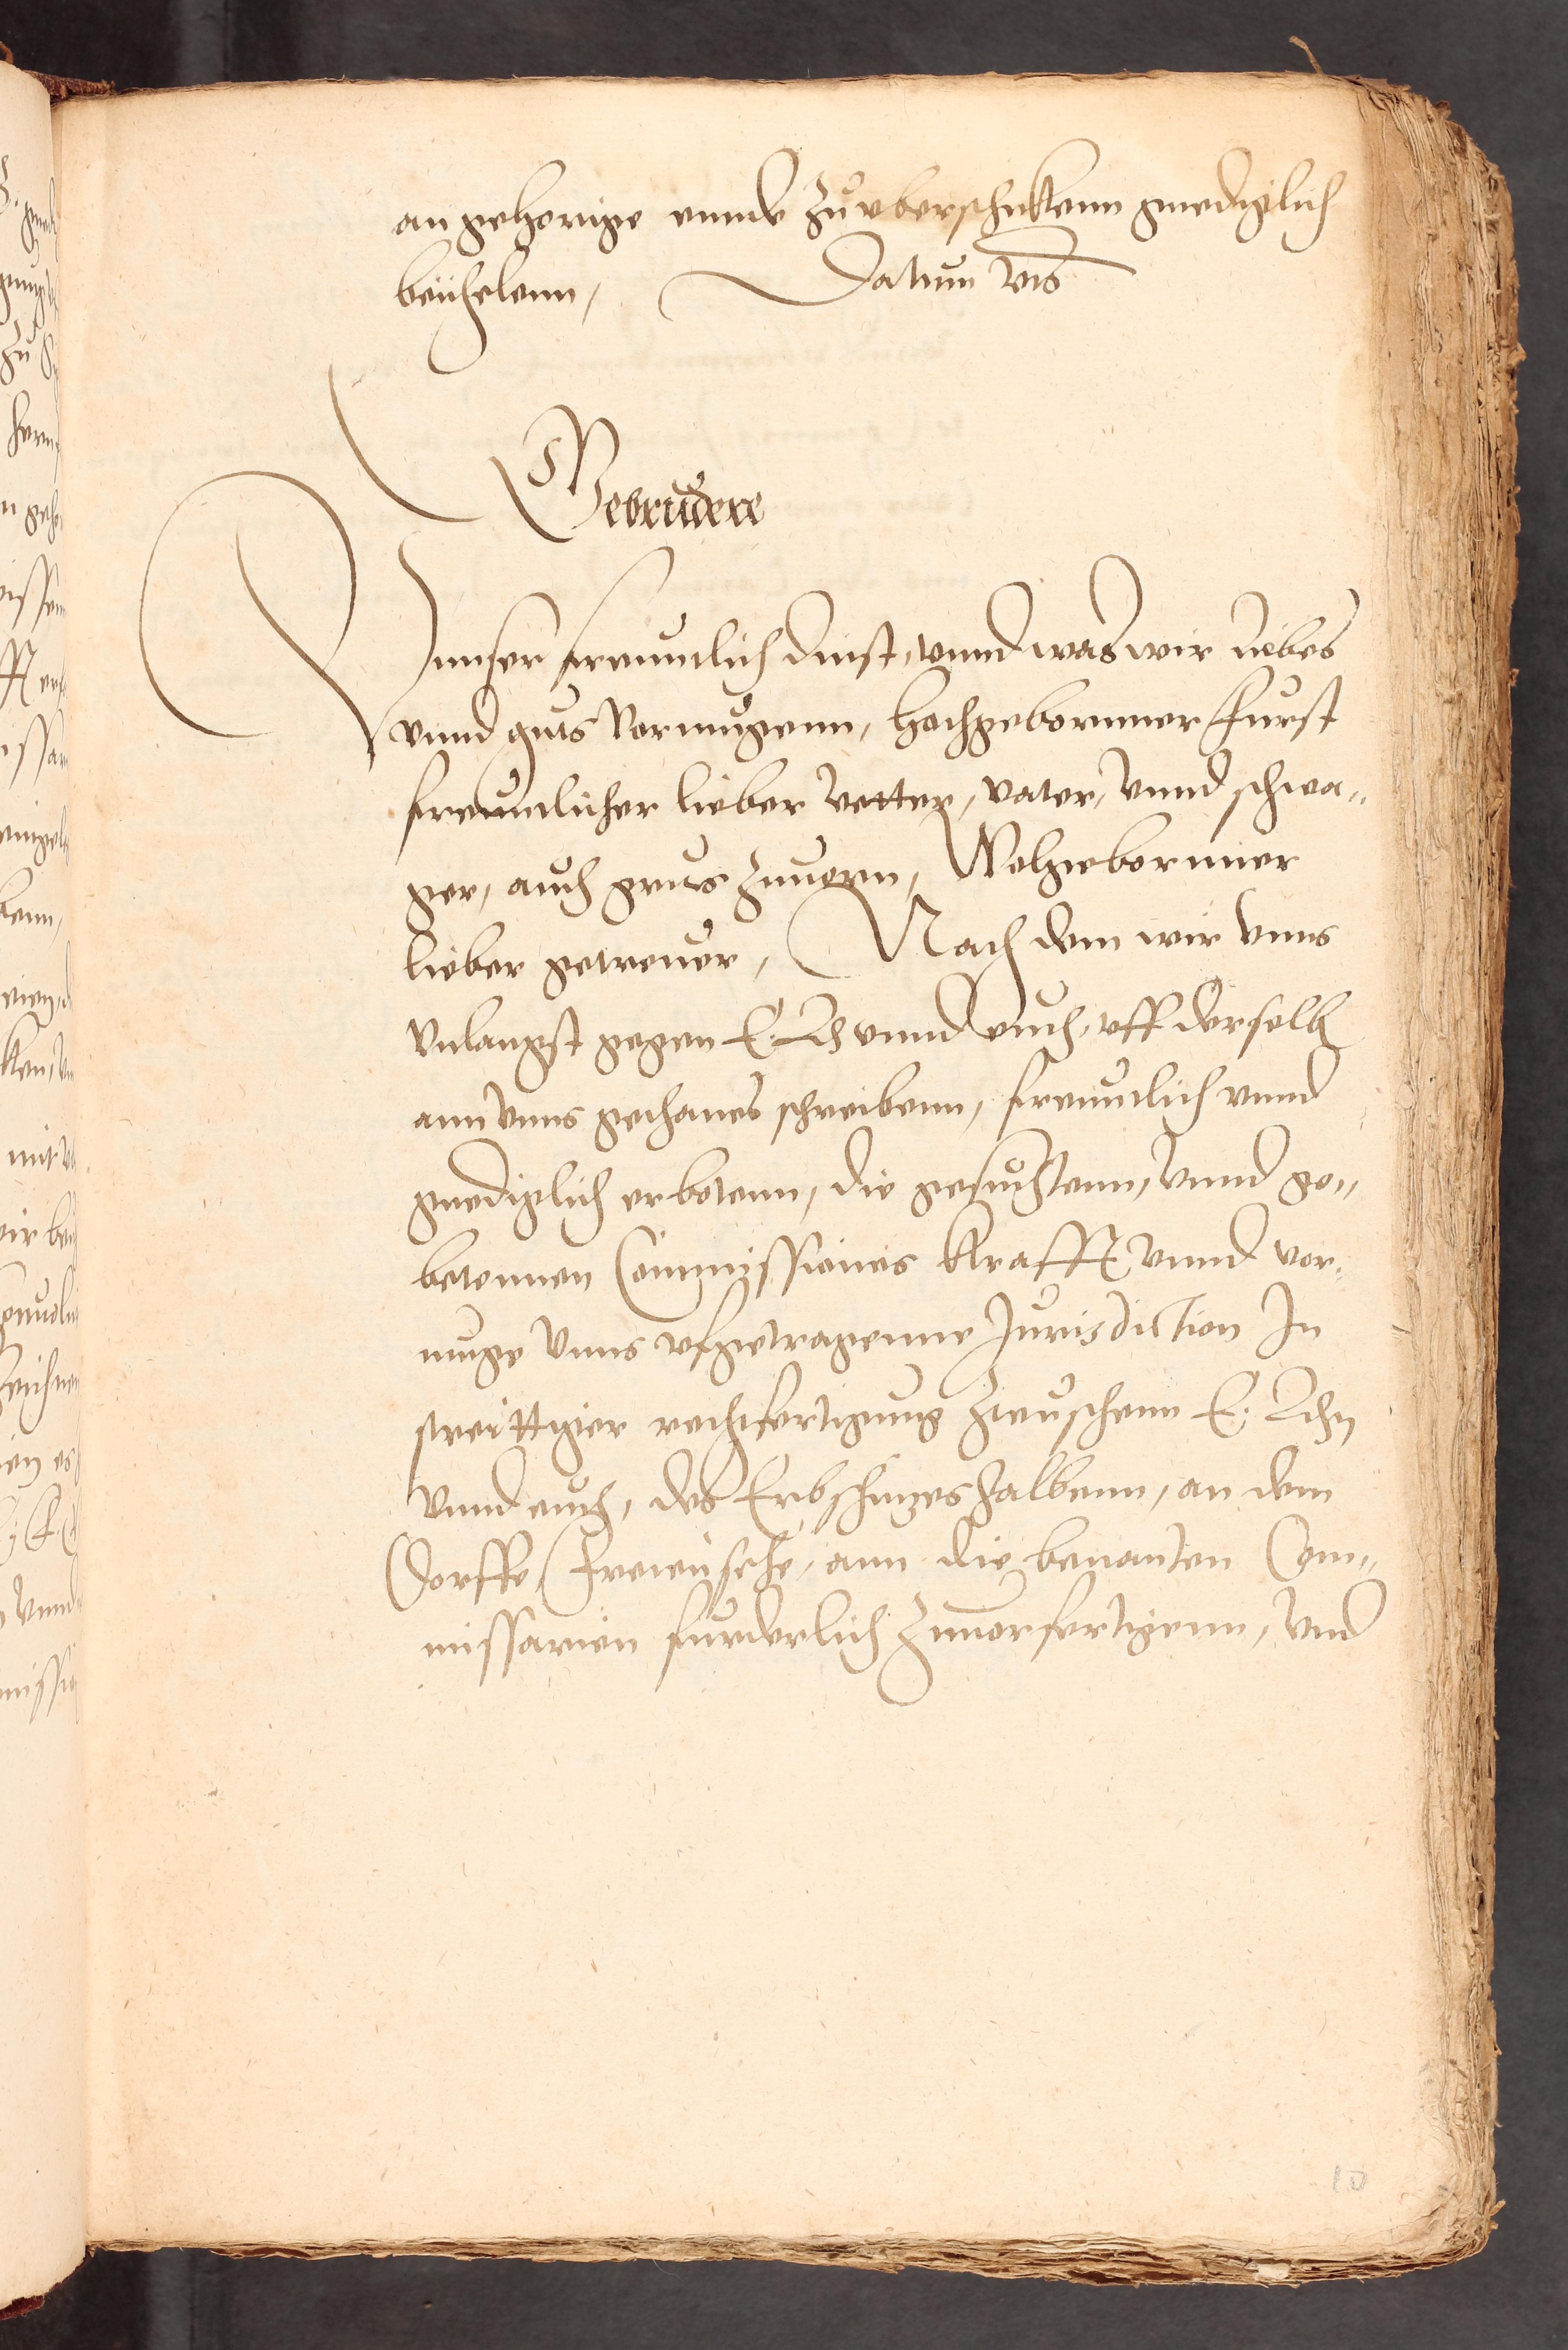 angehorige ennde zu vberschickenn gnediglich
beuhelenn, Datum vts
Gebrudere
Vnnser freuntlich dinst, vnnd was wir liebes
vnnd guts vormugenn, hochgebornner Furst
freuntlicher lieber vetter, vater, vnnd schwa„
ger, auch grus zuuorn, Wolgebornner
lieber getreuer, Nach dem wir vnns
vnlangst gegen E. L. vnnd euch, vff derselb
ann vnns gethanes schreibenn, freuntlich vnnd
gnediglich erbotenn, die gesuchtenn, vnnd ge„
betennen Commissiones krafft vnnd vor„
muge vnns vfgetragenne Jurisdiction In
streittiger rechtfertigung zwuschenn E. L.
vnnd euch, des Erbschutzes halbenn, an dem
Dorffe, ann die benanten Com„
missarien furderlich zuuorfertigenn, vnd
10